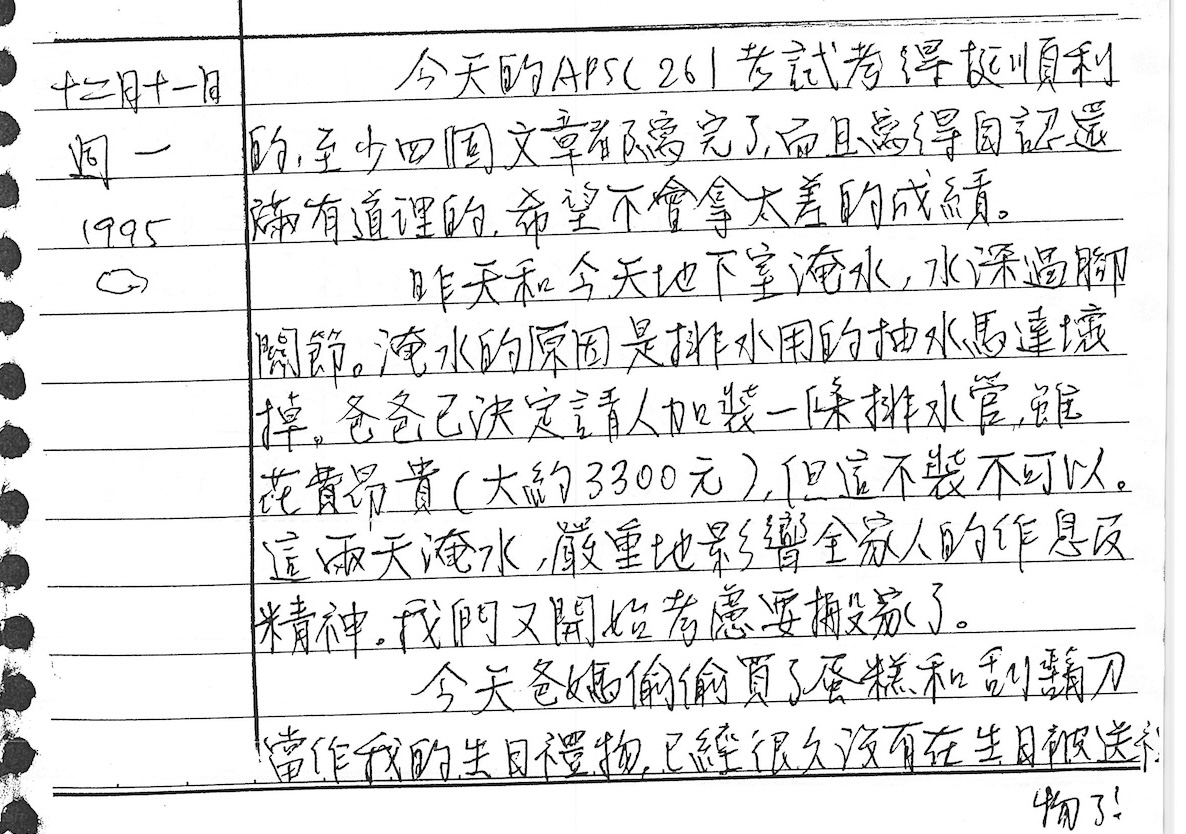 十二月十一日
週一
1995
今天的APSC 261考試考得挺順利
的,至少四個文章都寫完了,而且寫得自認還
滿有道理的,希望不會拿太差的成績。
昨天和今天地下室淹水,水深過腳
關節。淹水的原因是排水用的抽水馬達壞
掉。爸爸已決定請人加裝一條排水管,雖
花費昂貴(大約3300元),但這不裝不可以。
這兩天淹水,嚴重地影響全家人的作息及
精神。我們又開始考慮要搬家了。
今天爸媽偷偷買了蛋糕和刮鬍刀
當作我的生日禮物,已經很久沒有在生日被送禮
物了!